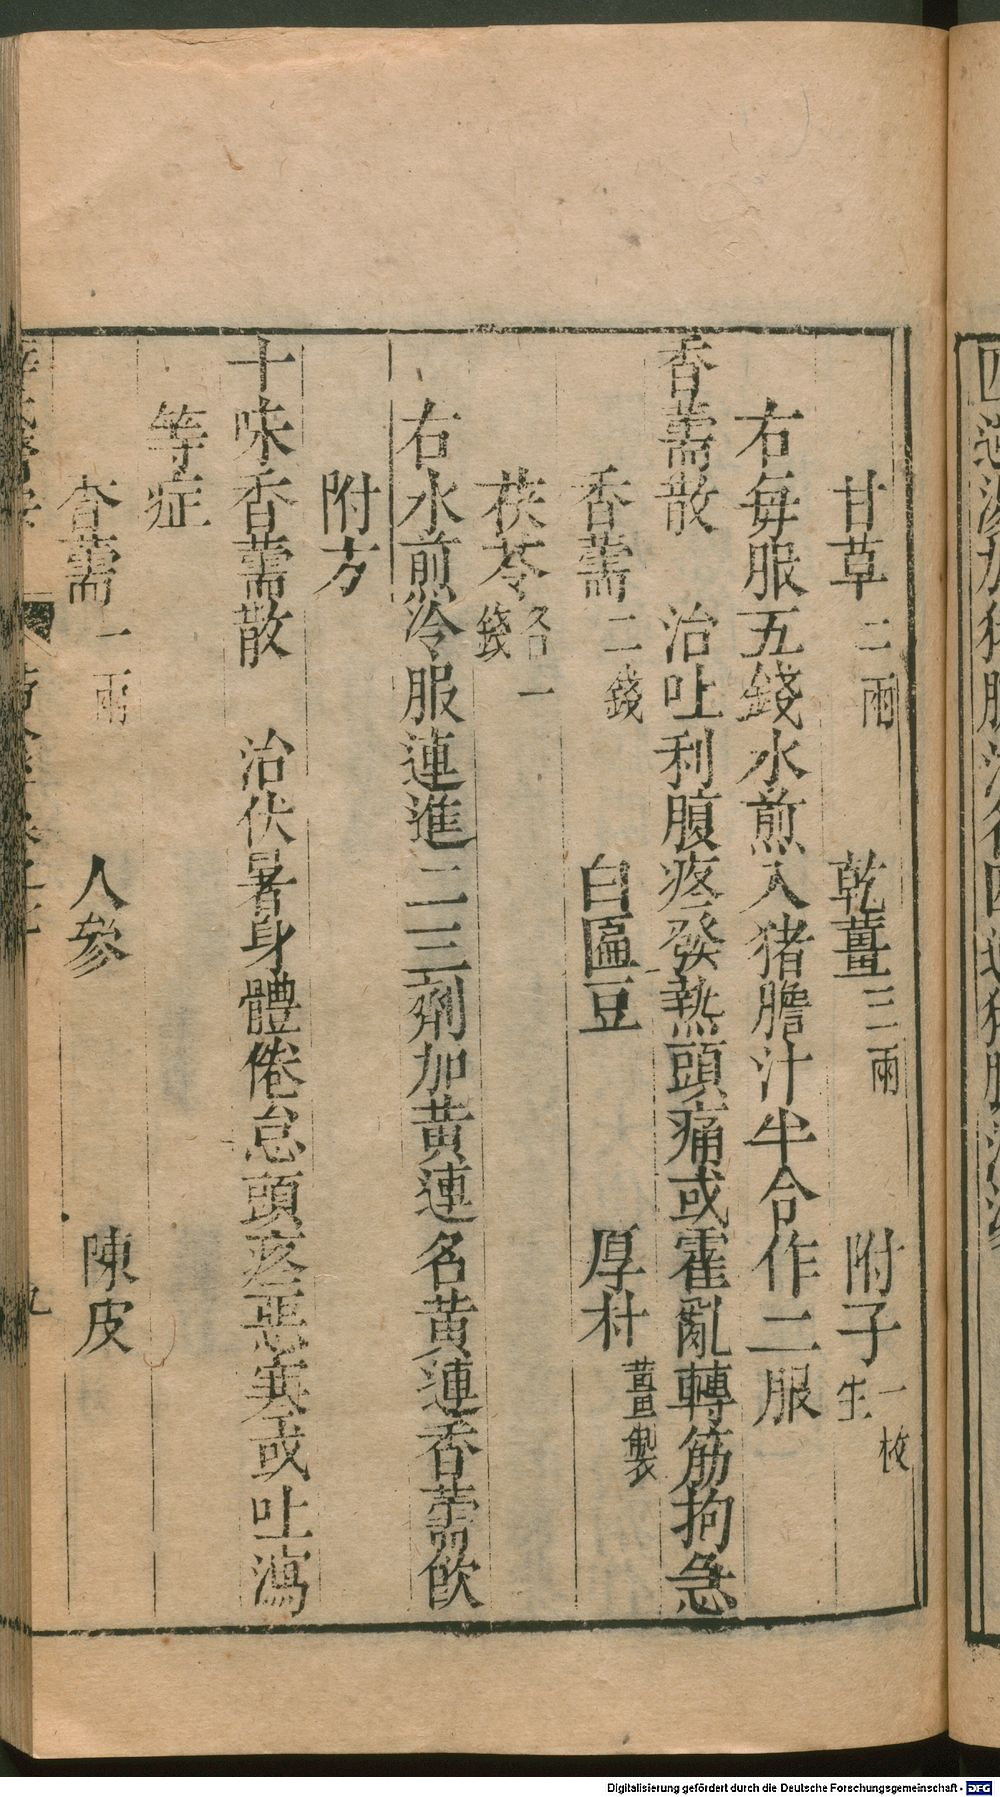 甘草二兩 乾薑三兩 附子一枚生
右每服五錢水煎入猪膽汁半合作二服
香薷散 治吐利腹疼發熱頭痛或霍亂轉筋拘急
香薷二錢 白匾豆 厚朴薑製
茯苓各一錢
右水煎冷服連進二三劑加黃連名黃連香薷飲
附方
十味香薷散 治伏暑身體倦怠頭疼惡寒或吐瀉
等症
香薷一兩 人參 陳皮
九
Digitalisierung gefördert durch die Deutsche Forschungsgemeinschaft - DFG